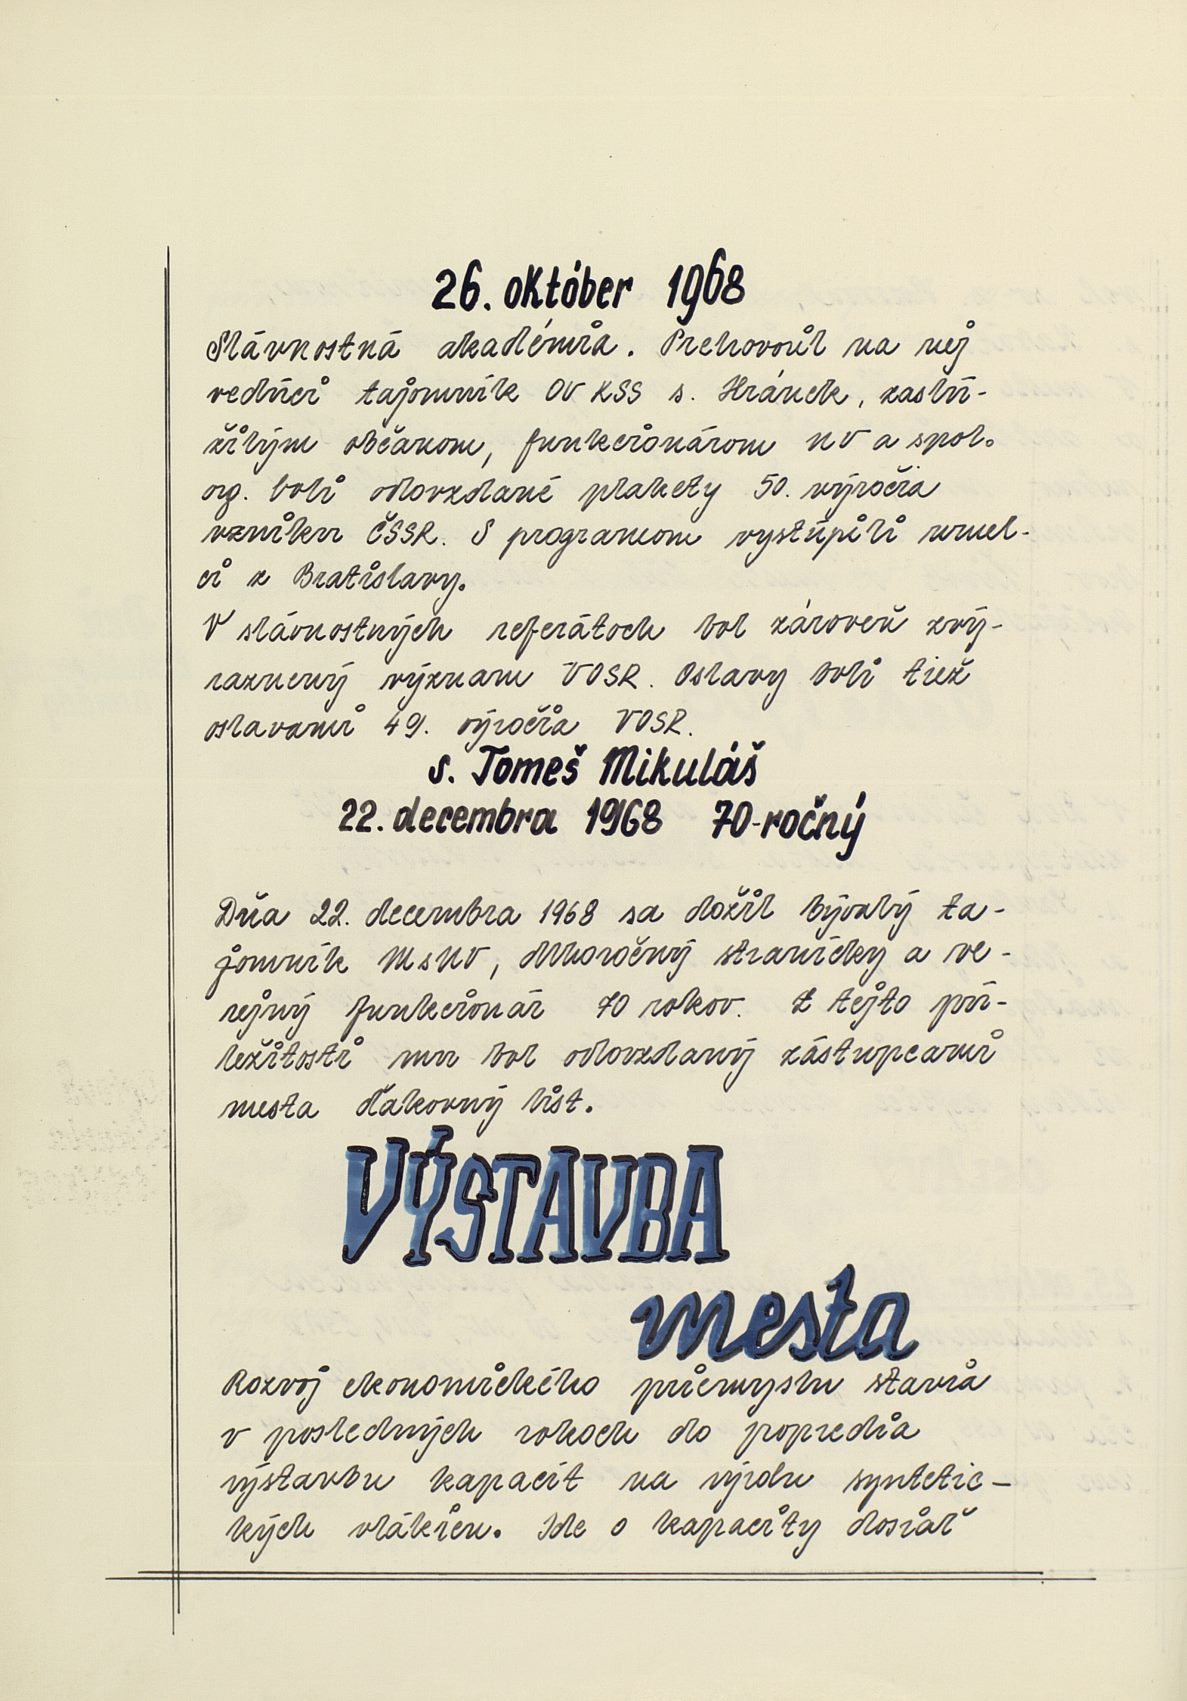 26. október 1968
Slávnostná akadémia. Prehovoril na nej
vedúci tajomník OV KSS s. Hránek, zaslú-
žilým občanom, funkcionárom NV a spol.
org. boli odovzdané plakety 50. výročia
vzniku ČSSR. S programom vystúpili umel-
ci z Bratislavy.
V slávnostných referátoch bol zároveň zvý-
raznený význam VOSR. Oslavy boli tiež
oslavami 49. výročia VOSR.
s. Tomeš Mikuláš
22. decembra 1968 70-ročný
Dňa 22. decembra 1968 sa dožil bývalý ta-
jomník MsNV, dlhoročný stranícky a ve-
rejný funkcionár 70 rokov. Z tejto prí-
ležitosti mu bol odovzdaný zástupcami
mesta ďakovný list.
VÝSTAVBA
mesta
Rozvoj ekonomického priemyslu stavia
v posledných rokoch do popredia
výstavbu kapacít na výrobu syntetic-
kých vlákien. Ide o kapacity dosiaľ